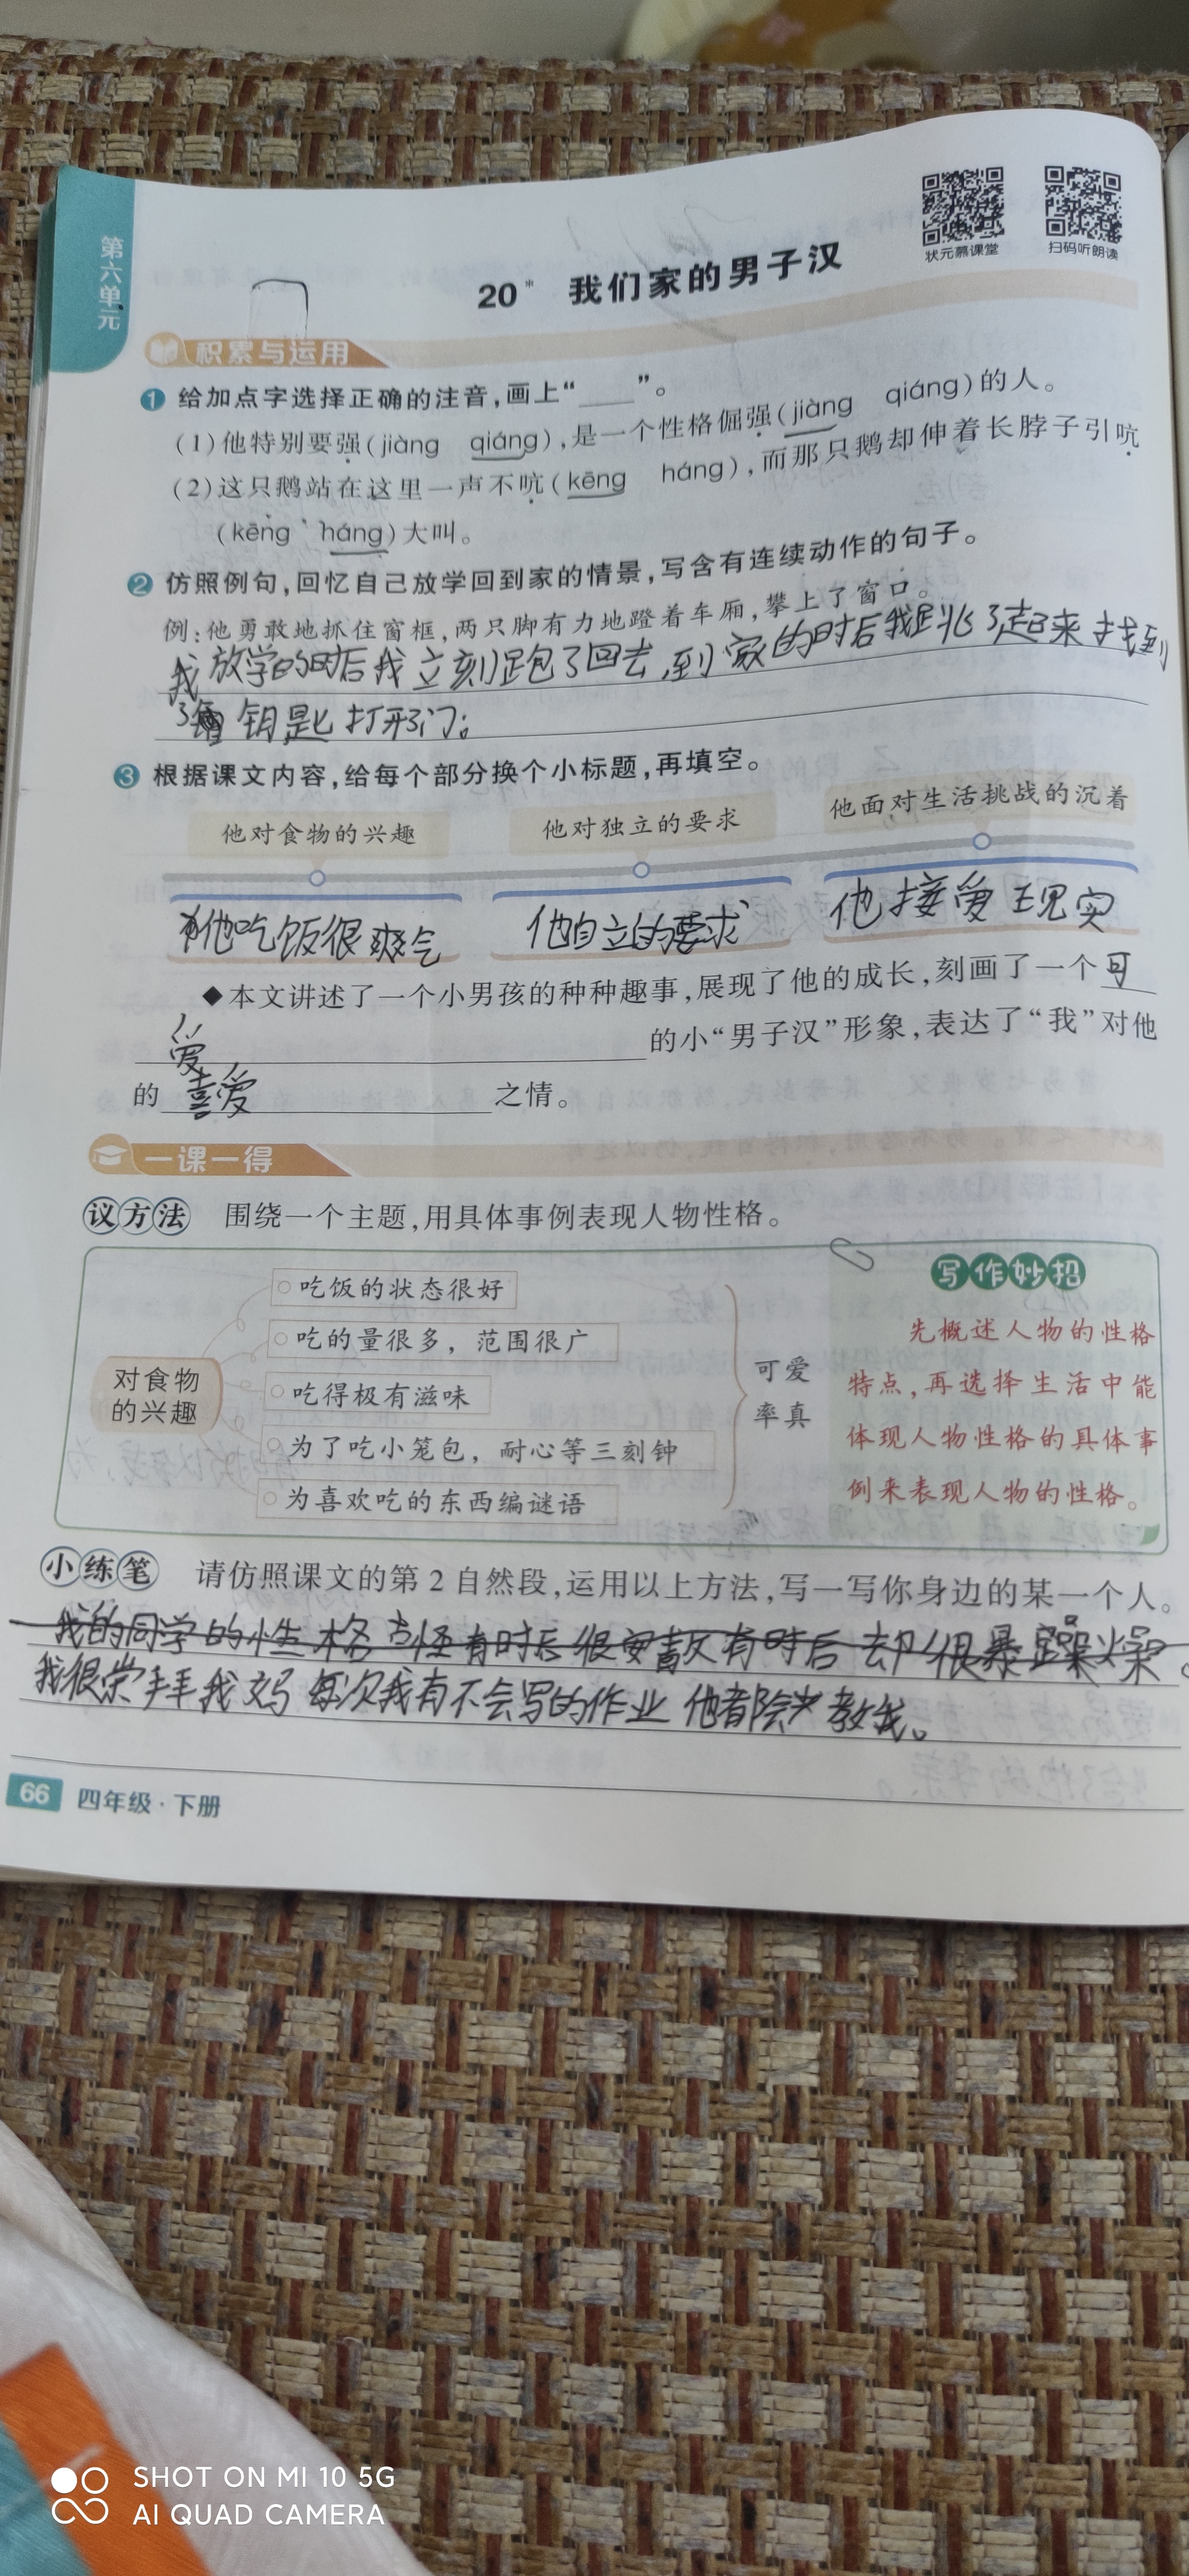 第六单元
状元慕课堂
扫码听朗读
20* 我们家的男子汉
积累与运用
1 给加点字选择正确的注音,画上“____”。
(1)他特别要强(jiàng qiáng),是一个性格倔强(jiàng qiáng)的人。
(2)这只鹅站在这里一声不吭(kēng háng),而那只鹅却伸着长脖子引吭
(kēng háng)大叫。
2 仿照例句,回忆自己放学回到家的情景,写含有连续动作的句子。
例:他勇敢地抓住窗框,两只脚有力地蹬着车厢,攀上了窗口。
我放学的时后我立刻跑了回去,到家的时后我跳了起来找到
了 钥匙打开了门。
3 根据课文内容,给每个部分换个小标题,再填空。
他对食物的兴趣 他对独立的要求 他面对生活挑战的沉着
他吃饭很爽气 他自立的要求 他接受现实
◆本文讲述了一个小男孩的种种趣事,展现了他的成长,刻画了一个可
爱 的小“男子汉”形象,表达了“我”对他
的 喜爱 之情。
一课一得
议方法 围绕一个主题,用具体事例表现人物性格。
对食物的兴趣
吃饭的状态很好
吃的量很多，范围很广
吃得极有滋味
为了吃小笼包，耐心等三刻钟
为喜欢吃的东西编谜语
可爱
率真
写作妙招
先概述人物的性格
特点,再选择生活中能
体现人物性格的具体事
例来表现人物的性格。
小练笔 请仿照课文的第2自然段,运用以上方法,写一写你身边的某一个人。
我的同学的性格古怪有时后很安 有时后却很暴躁
我很崇拜我妈每次我有不会写的作业他都会教我。
66 四年级·下册
SHOT ON MI 10 5G
AI QUAD CAMERA